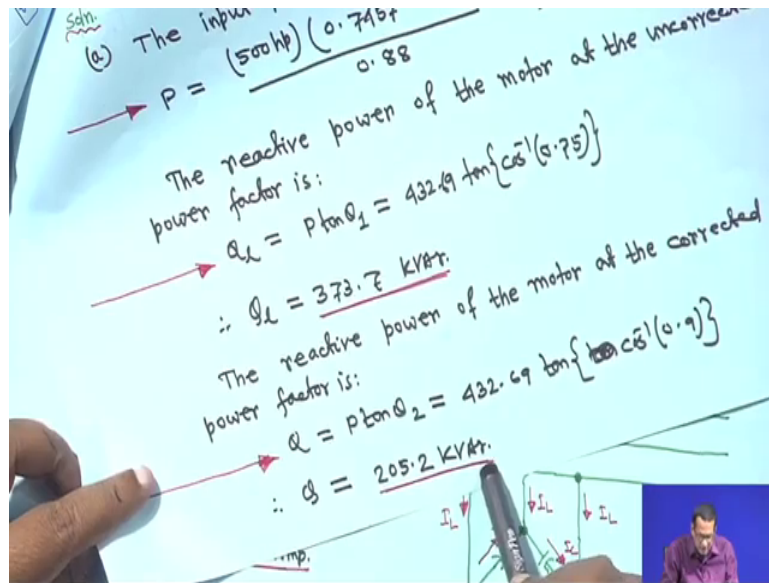 Soln.
(a) The input
P = (500hp)(0.7457
0.88
The reactive power of the motor at the uncorrected
power factor is:
Q_L = P tanθ_1 = 432.69 tan{cos⁻¹(0.75)}
∴ Q_L = 373.7 KVAr.
The reactive power of the motor at the corrected
power factor is:
Q = P tanθ_2 = 432.69 tan{cos⁻¹(0.9)}
∴ Q = 205.2 KVAr.
I_L I_L I_L
I_C